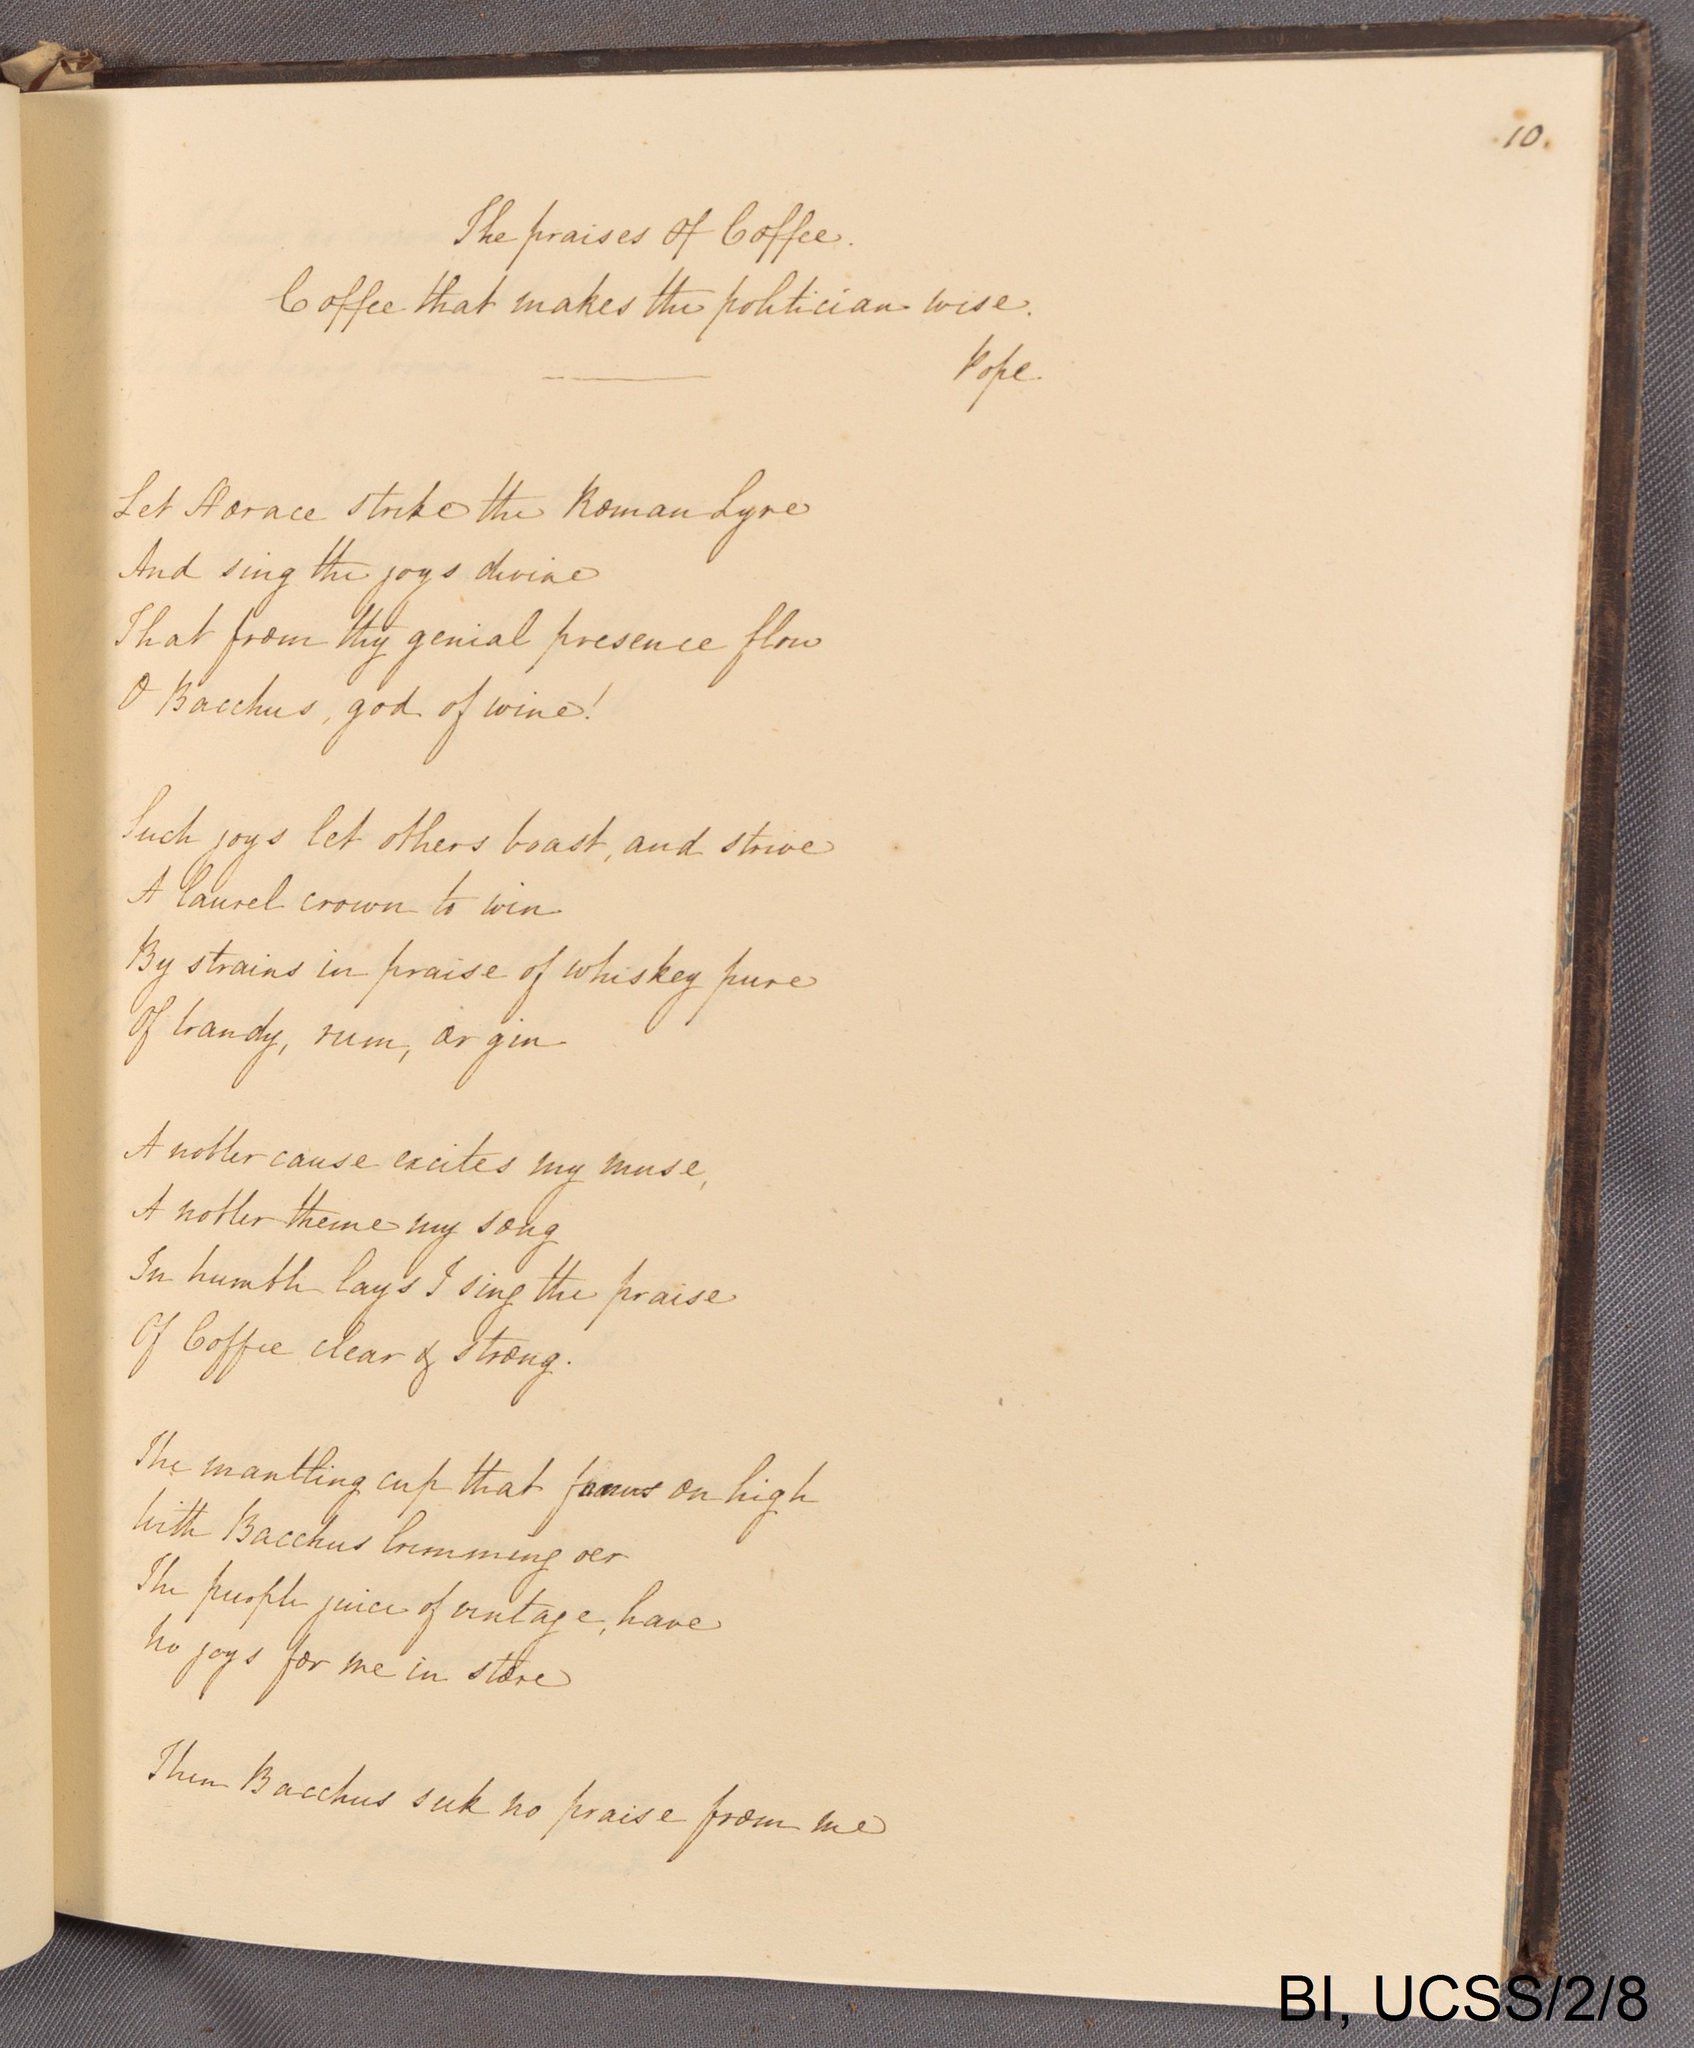 10.
The praises of Coffee.
Coffee that makes the politician wise.
Pope.
Let Horace strike the Roman Lyre
And sing the joys divine
That from thy genial presence flow
O Bacchus, god of wine!
Such joys let others boast, and strive
A laurel crown to win
By strains in praise of whiskey pure
Of brandy, rum, or gin
A nobler cause excites my muse,
A nobler theme my song
In humble lays I sing the praise
Of Coffee clear & strong.
The mantling cup that foams on high
With Bacchus brimming oer
The purple juice of vintage, have
No joys for me in store
Then Bacchus seek no praise from me
BI, UCSS/2/8